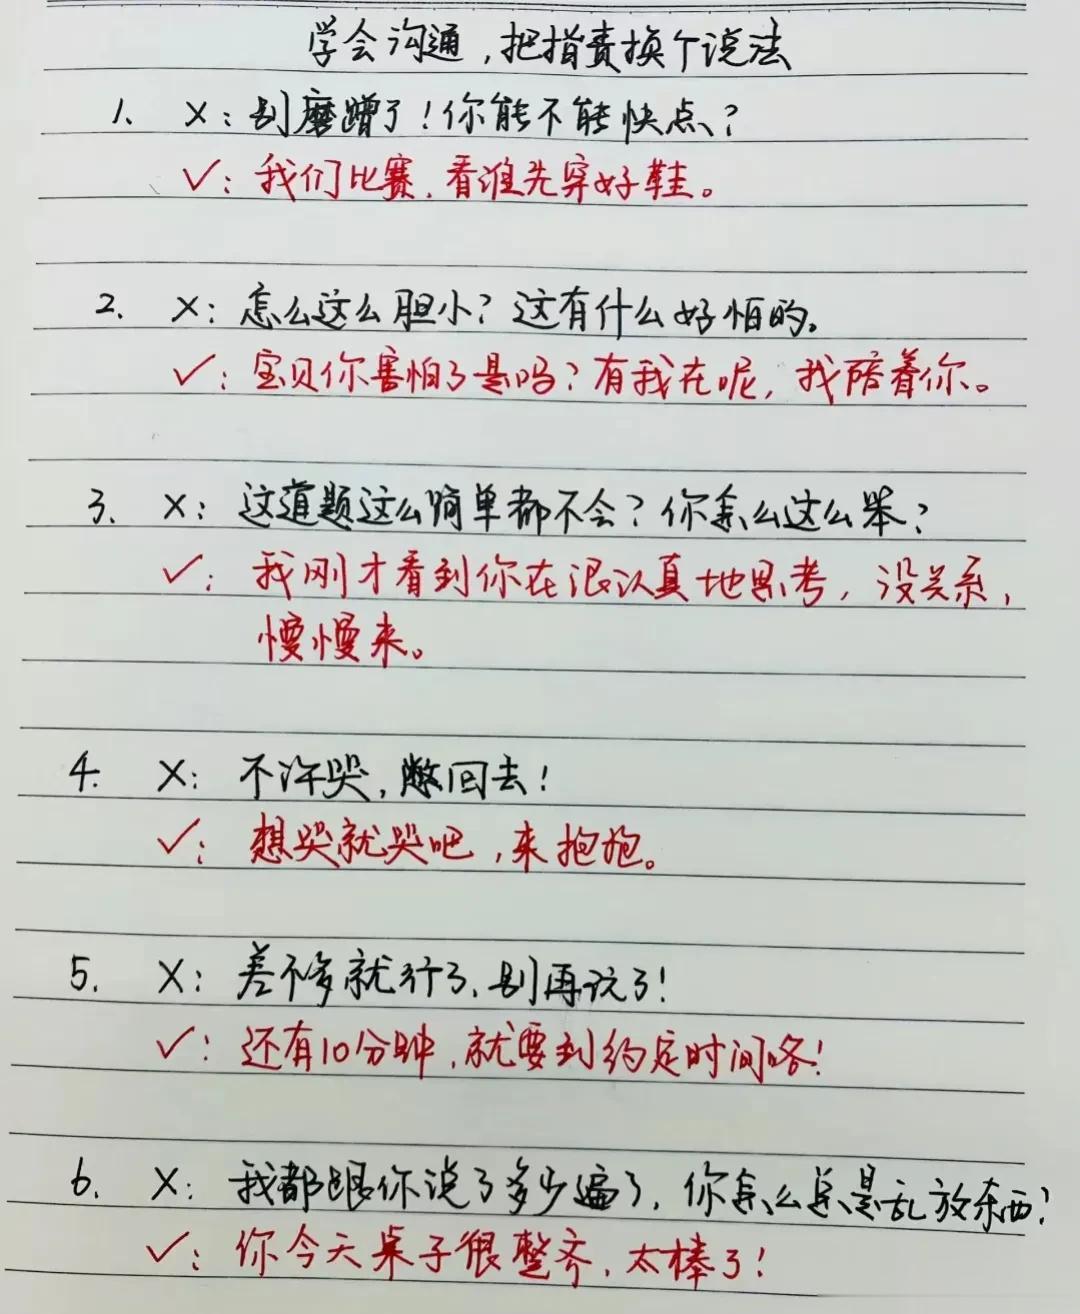 学会沟通，把指责换个说法
1. X：别磨蹭了！你能不能快点？
✓：我们比赛，看谁先穿好鞋。
2. X：怎么这么胆小？这有什么好怕的。
✓：宝贝你害怕了是吗？有我在呢，我陪着你。
3. X：这道题这么简单都不会？你怎么这么笨？
✓：我刚才看到你在很认真地思考，没关系，
慢慢来。
4. X：不许哭，憋回去！
✓：想哭就哭吧，来抱抱。
5. X：差不多就行了，别再玩了！
✓：还有10分钟，就要到约定时间咯！
6. X：我都跟你说了多少遍了，你怎么总是乱放东西？
✓：你今天桌子很整齐，太棒了！